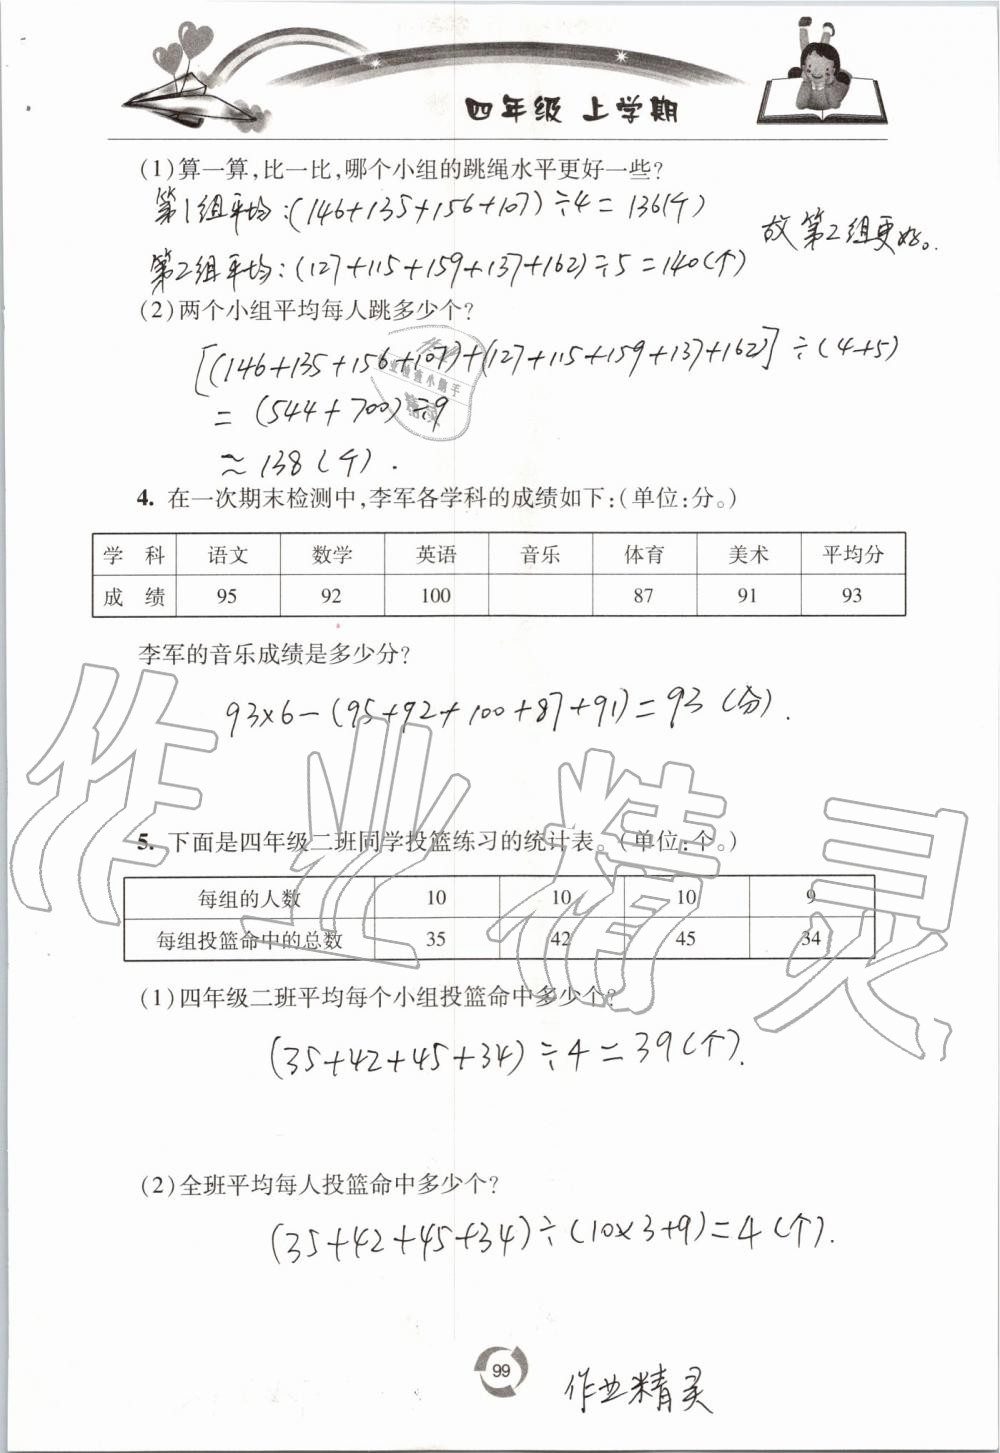 四年级 上学期
(1)算一算,比一比,哪个小组的跳绳水平更好一些?
第1组平均:(146+135+156+107)÷4=136(个)
故第2组更好。
第2组平均:(127+115+159+137+162)÷5=140(个)
(2)两个小组平均每人跳多少个?
[(146+135+156+107)+(127+115+159+137+162)]÷(4+5)
=(544+700)÷9
≈138(个).
4. 在一次期末检测中,李军各学科的成绩如下:(单位:分。)
学 科 语文 数学 英语 音乐 体育 美术 平均分
成 绩 95 92 100 87 91 93
李军的音乐成绩是多少分?
93×6-(95+92+100+87+91)=93(分).
5. 下面是四年级二班同学投篮练习的统计表。(单位:个。)
每组的人数 10 10 10 9
每组投篮命中的总数 35 42 45 34
(1)四年级二班平均每个小组投篮命中多少个?
(35+42+45+34)÷4=39(个).
(2)全班平均每人投篮命中多少个?
(35+42+45+34)÷(10×3+9)=4(个).
99
作业精灵
作业精灵